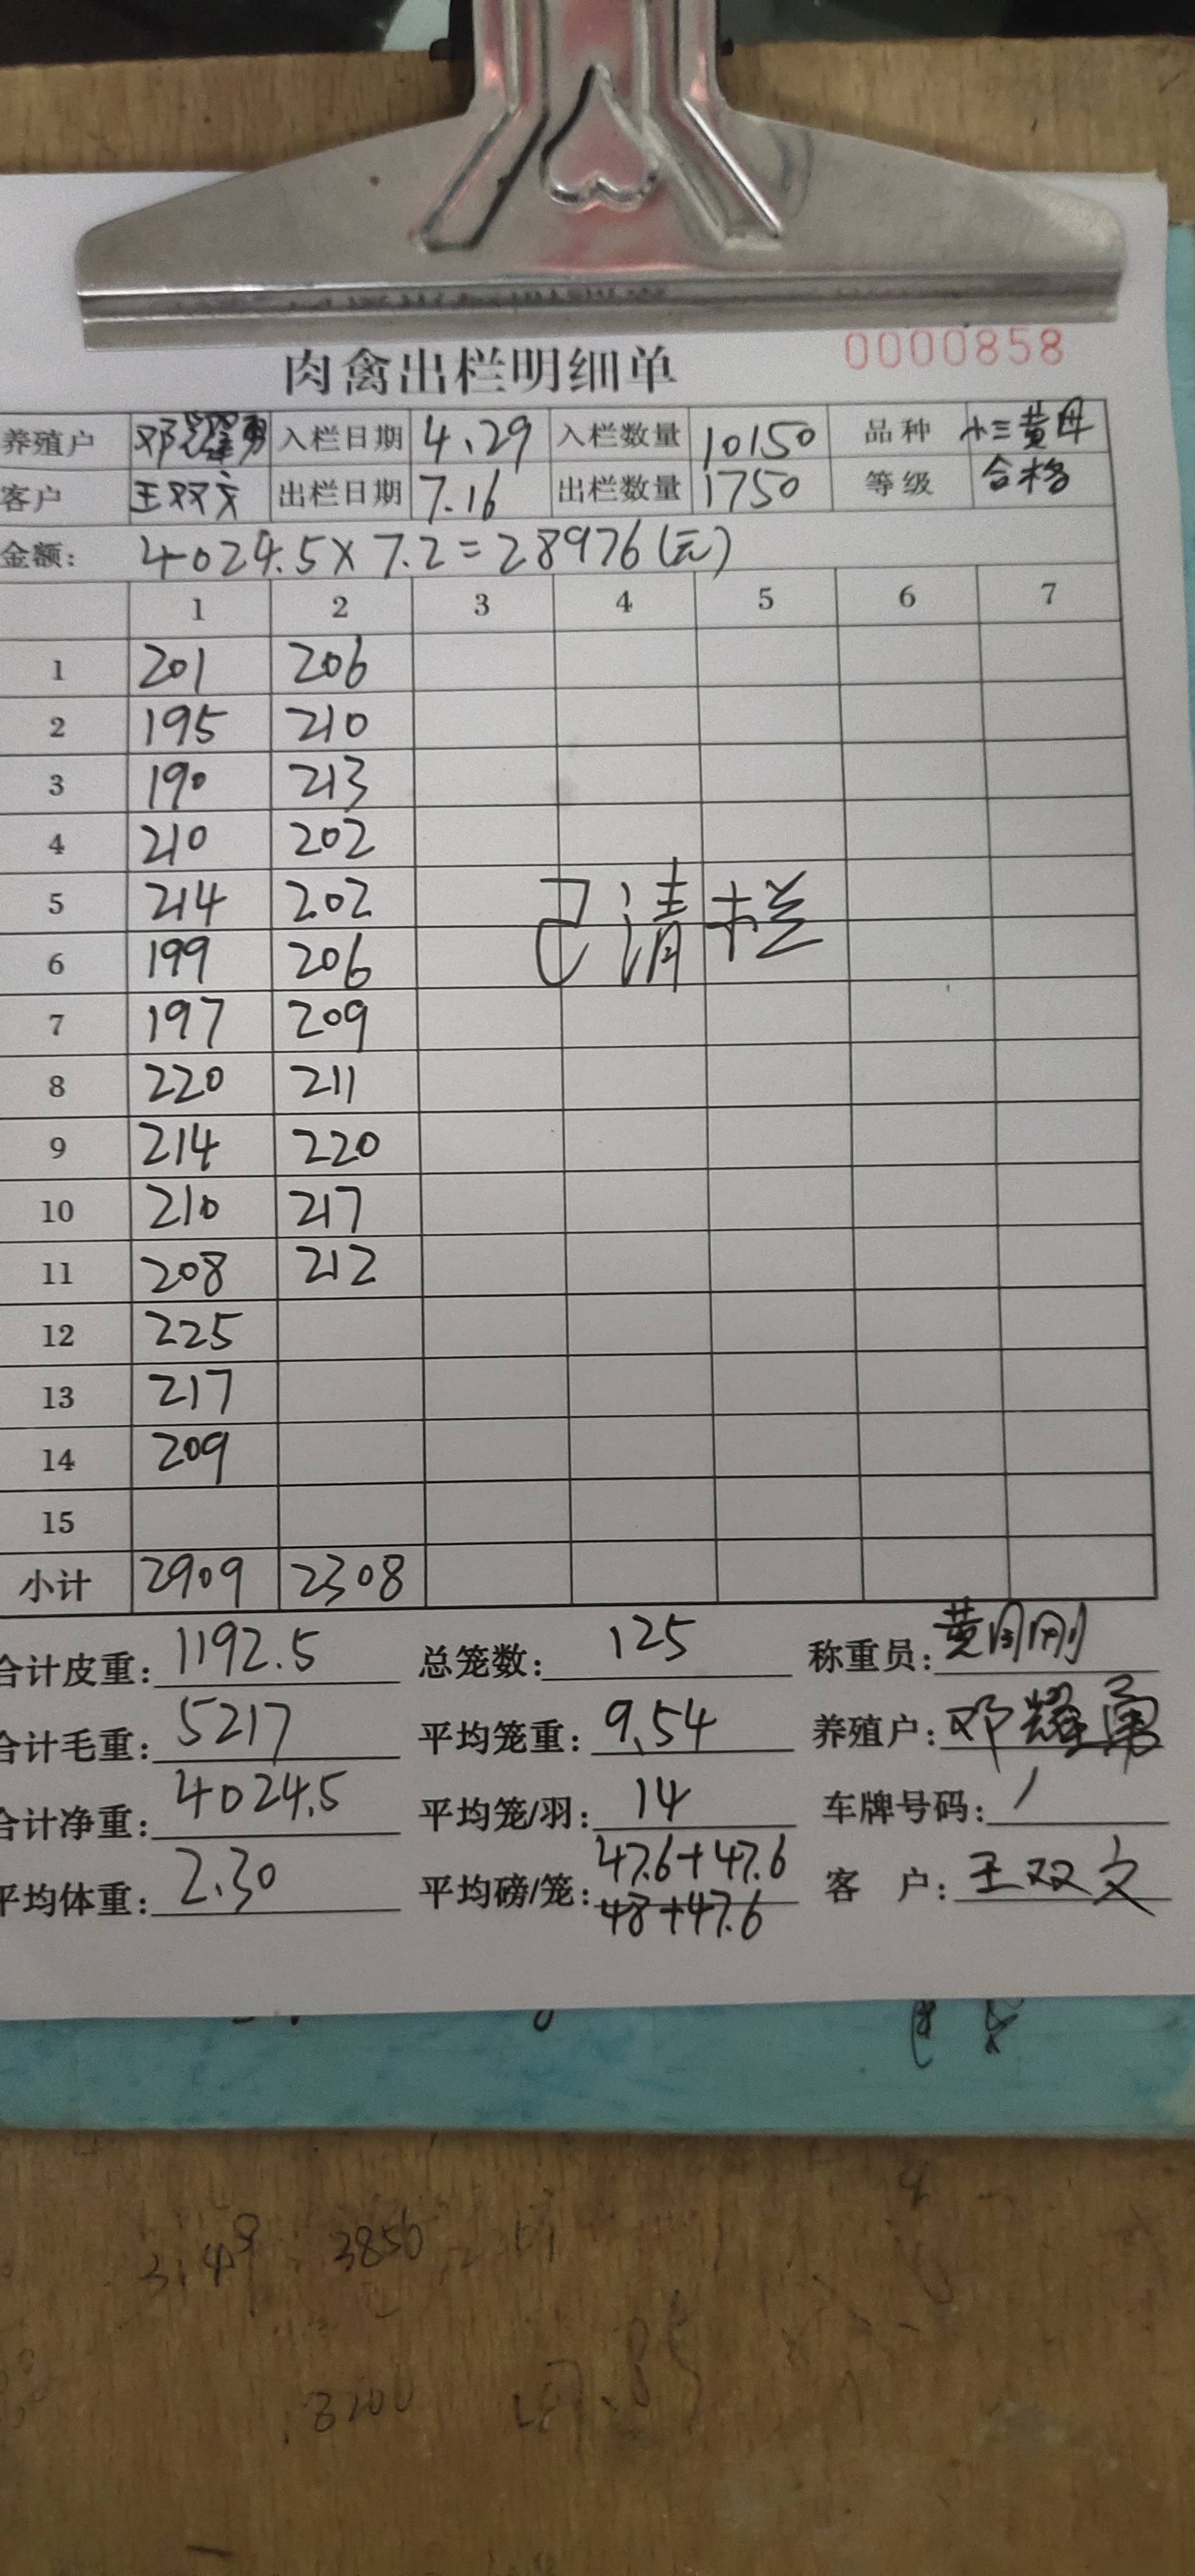 肉禽出栏明细单 0000858
养殖户 邓耀勇 入栏日期 4.29 入栏数量 10150 品种 小三黄母
客户 王双文 出栏日期 7.16 出栏数量 1750 等级 合格
金额: 4024.5×7.2=28976(元)
1 2 3 4 5 6 7
1 201 206
2 195 210
3 190 213
4 210 202
5 214 202
已清栏
6 199 206
7 197 209
8 220 211
9 214 220
10 210 217
11 208 212
12 225
13 217
14 209
15
小计 2909 2308
合计皮重: 1192.5 总笼数: 125 称重员: 黄刚
合计毛重: 5217 平均笼重: 9.54 养殖户: 邓耀勇
合计净重: 4024.5 平均笼/羽: 14 车牌号码: /
平均体重: 2.30 平均磅/笼: 47.6+47.6 客 户: 王双文
48+47.6
3850
3200